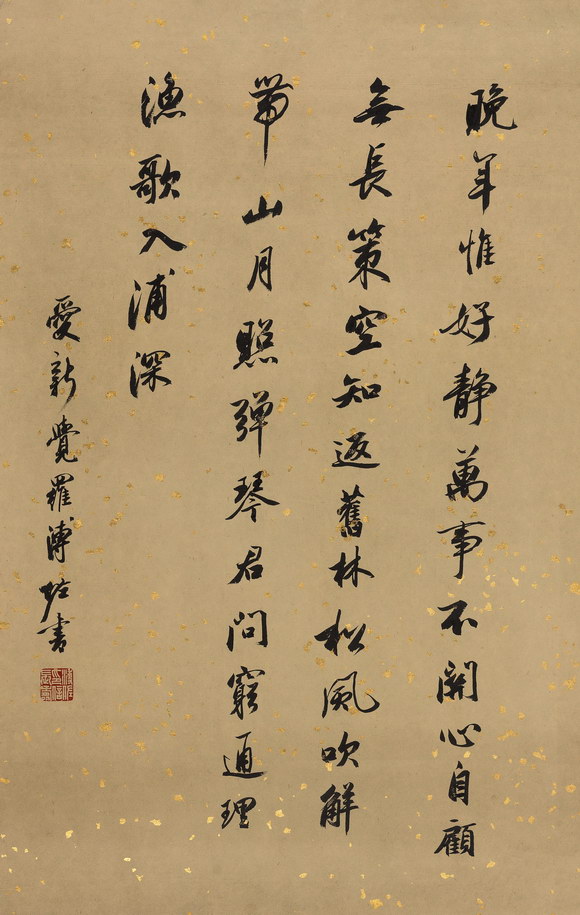 晚年惟好静萬事不關心自顧
無長策空知返舊林松風吹解
帶山月照彈琴君問窮通理
漁歌入浦深
愛新覺羅溥書